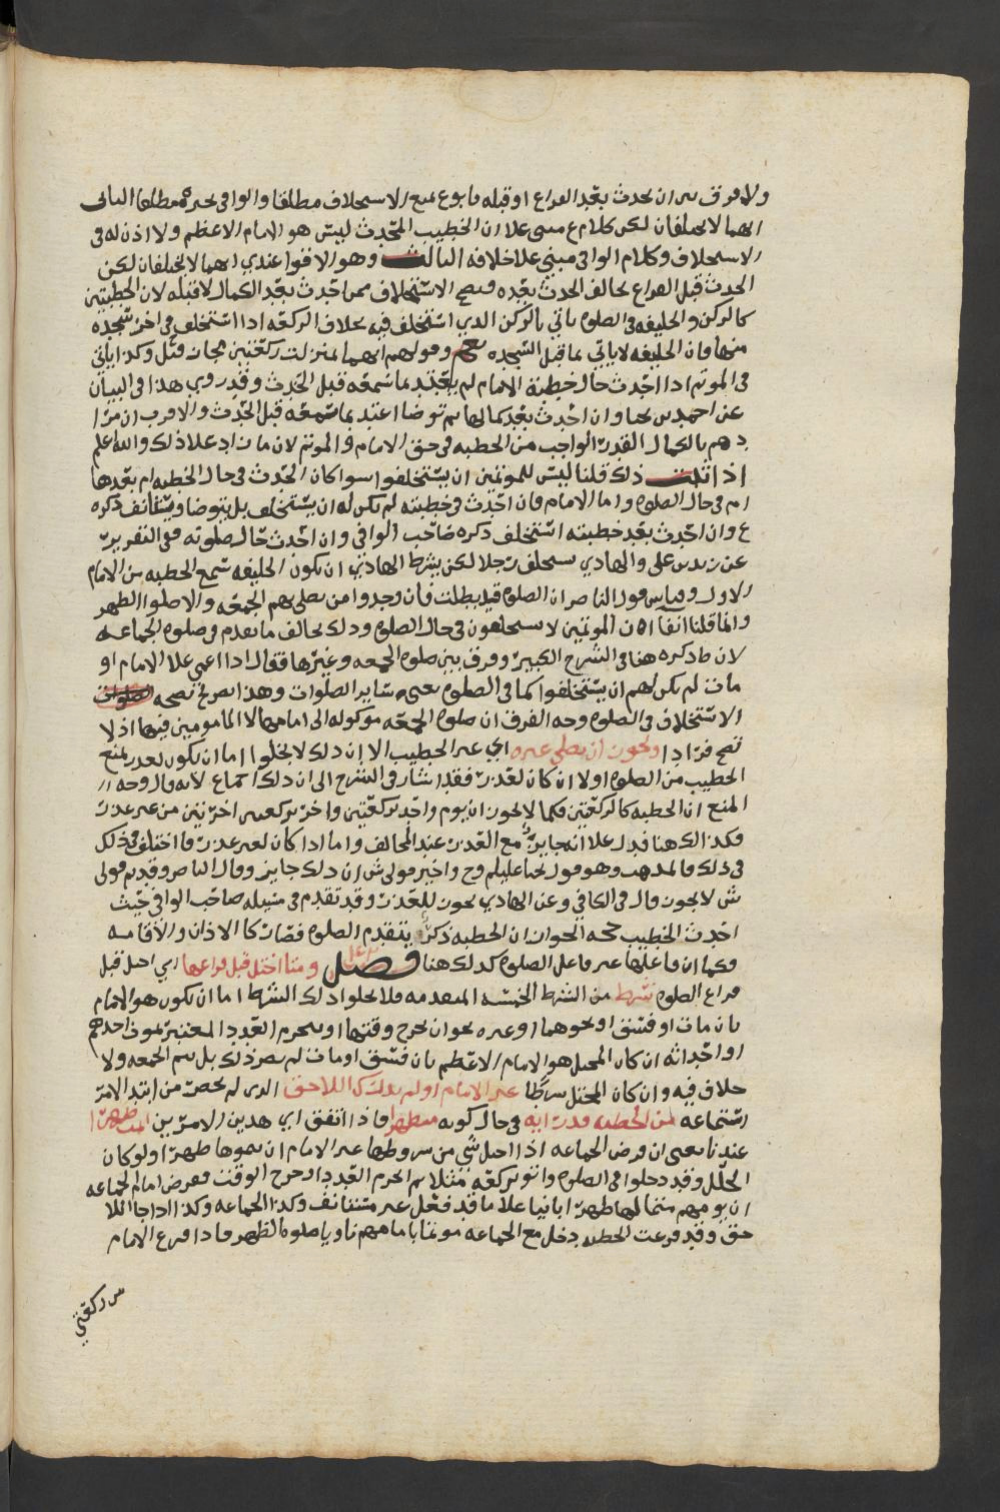 ولا فرق بين ان يحدث بعد الفراغ او قبله فابو ع يمنع الاستخلاف مطلقا والوافي يجيزه مطلقا الثاني
انهما لا يختلفان لكن كلام ع مبني علا ان الخطيب المحدث ليس هو الامام الاعظم ولا اذن له في
الاستخلاف وكلام الوافي مبني علا خلافه الثالث وهو الاقوا عندي انهما لا يختلفان لكن
الحدث قبل الفراغ يخالف الحدث بعده فيصح الاستخلاف ممن احدث بعد الكمال لا قبله لان الخطبتين
كالركن والخليفه في الصلوه ياتي بالركن الذي استخلف فيه بخلاف الركعه اذا استخلف في اخر سجده
منها فان الخليفه لا ياتي بما قبل السجده وقولهم انهما بمنزلت ركعتين مجاز وكذا ياتي
في الموتم اذا احدث حال خطبة الامام لم يعتد بما سمعه قبل الحدث وقد روي هذا في البيان
عن احمد بن يحيا وان احدث بعد كمالها ثم توضا اعتد بما سمعه قبل الحدث والاقرب ان مرا
دهم بالكمال القدر الواجب من الخطبه في حق الامام والموتم لان ما زاد علا ذلك والله اعلم
اذا ذلك قلنا ليس للموتمين ان يستخلفوا سوا كان الحدث في حال الخطبه ام بعدها
ام في حال الصلوه واما الامام فان احدث في خطبته لم يكن له ان يستخلف بل يتوضا ويستانف ذكره
ع وان احدث بعد خطبته استخلف ذكره صاحب الوافي وان احدث حال صلوته ففي التقرير
عن زيد بن علي والهادي يستخلف رجلا لكن يشرط الهادي ان يكون الخليفه سمع الخطبه من الامام
الاول وقياس قول الناصر ان الصلوه قد بطلت فان وجدوا من يصلي بهم الجمعه والا صلوا الظهر
وانما قلنا انفا ان الموتمين لا يستخلفون في حال الصلوه وذلك يخالف ما تقدم في صلوه الجماعه
لان ما ذكره هنا في الشرح الكبير وفرق بين صلوه الجمعه وغيرها فقال اذا اغمي علا الامام او
مات لم يكن لهم ان يستخلفوا كما في الصلوه يعني سائر الصلوات وهذا تصريح بصحه
الاستخلاف في الصلوه وجه الفرق ان صلوه الجمعه موكوله الى امامها لا المامومين فيها اذ لا
تصح فرادا ويجوز ان يصلي غيره اي غير الخطيب الا ان ذلك لا يخلوا اما ان يكون لعذر يمنع
الخطيب من الصلوه اولا ان كان لعذر فقد اشار في الشرح الى ان ذلك اجماع لانه قال وجه
المنع ان الخطبه كالركعتين فكما لا يجوز ان يوم واحد بركعتين واخر بركعتين اخرتين من غير عذر
فكذالك هنا فدل علا انه جايز مع العذر عند المخالف واما اذا كان لغير عذر فاختلف في ذلك
في ذلك فالمذهب وهو قول يحيا عليلم وح واخير قولي ش ان ذلك جايز وقال الناصر وقديم قولي
ش لا يجوز قال في الكافي وعن الهادي يجوز للعذر وقد تقدم في مسيله صاحب الوافي حيث
احدث الخطيب حجه الجواز ان الخطبه ذكر يتقدم الصلوه فصارت كالاذان والاقامه
فكما ان فاعلها غير فاعل الصلوه كذلك هنا فصل ومتا اختل قبل فراغها اي اختل قبل
فراغ الصلوه شرط من الشروط الخمسه المتقدمه فلا يخلوا ذلك الشرط اما ان يكون هو الامام
بان مات او فسق او نحوهما او غيره نحو ان يخرج وقتها او ينخرم العدد المعتبر بموت احدهم
او احداثه ان كان المختل هو الامام الاعظم بان فسق او مات لم يضر ذلك بل يتم الجمعه ولا
خلاف فيه وان كان المختل شرطا غير الامام او لم يدرك اللاحق الذي لم يحضر من ابتدا الامر
استماعه من الخطبه قدر ايه في حال كونه متطهرا فاذا اتفق اي هذين الامرين اتمت ظهرا
عندنا يعني ان فرض الجماعه اذا اختل شي من شروطها غير الامام ان يتموها ظهرا ولو كان
الخلل وقد دخلوا في الصلوه واتوا بركعه مثلا ثم انخرم العدد او خرج الوقت ففرض امام الجماعه
ان يومهم متما لها ظهرا بانيا علا ما قد فعل غير مستانف وكذا الجماعه وكذا اذا جا اللا
حق وقد فرغت الخطبه دخل مع الجماعه موتما بامامهم ناويا صلوه الظهر فاذا فرغ الامام
من ركعتي